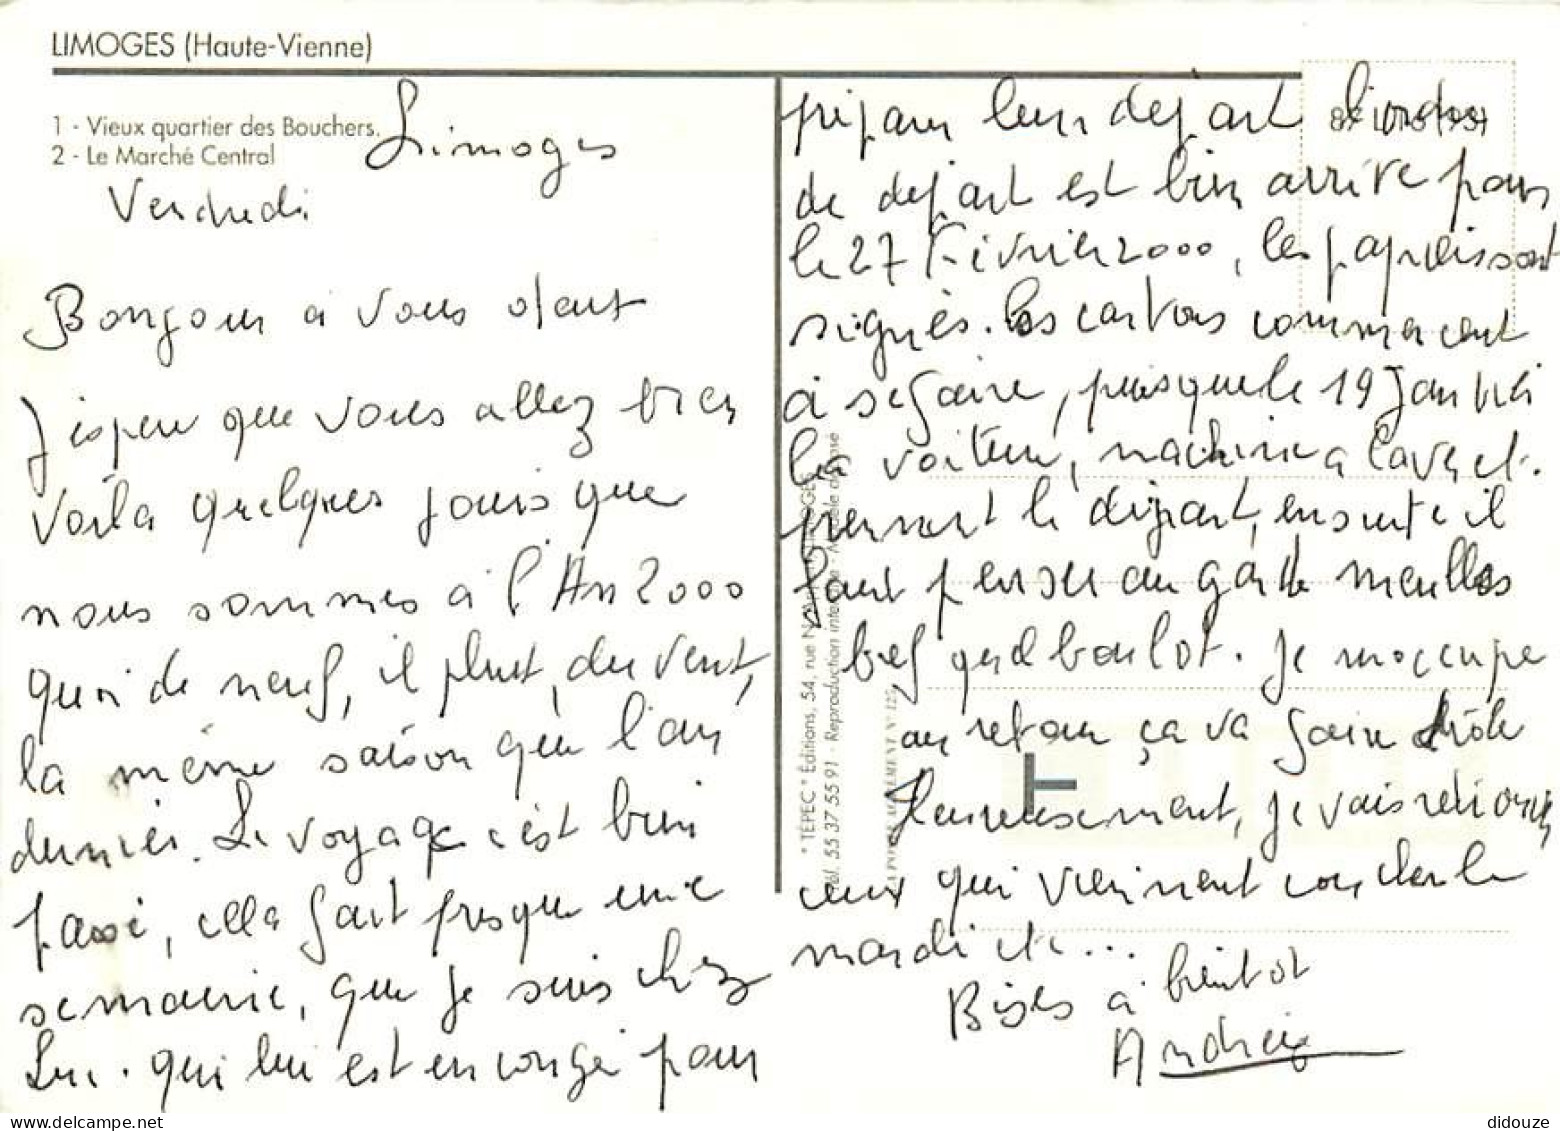 LIMOGES (Haute-Vienne)
1 - Vieux quartier des Bouchers.
2 - Le Marché Central
Limoges
Vendredi
Bonjour à vous deux
J'espere que vous allez bien
Voila quelques jours que
nous sommes à l'An 2000
quoi de neuf, il pleut, du vent,
la même saison que l'an
dernier. Le voyage c'est bien
passé, cella fait presque une
semaine, que je suis chez
Luc. qui lui est en congé pour
préparer leur depart
de depart est bien arrivé pour
le 27 Février 2000, les papiers sont
signés. les cartons commencent
à se faire, puisque le 19 Janvier
la voiture, machine a laver etc.
prennent le départ, ensuite il
faut penser au garde meubles
bref quel boulot. Je m'occupe
au retour ça va faire drôle
Heureusement, je vais retrouver
ceux qui viennent con le
mardi etc...
Bises à bientot
Andrée
" TÉPEC " Éditions, 54, rue N LIMOGES
Tél. 55 37 55 91 - Reproduction interdite - Modèle déposé
didouze